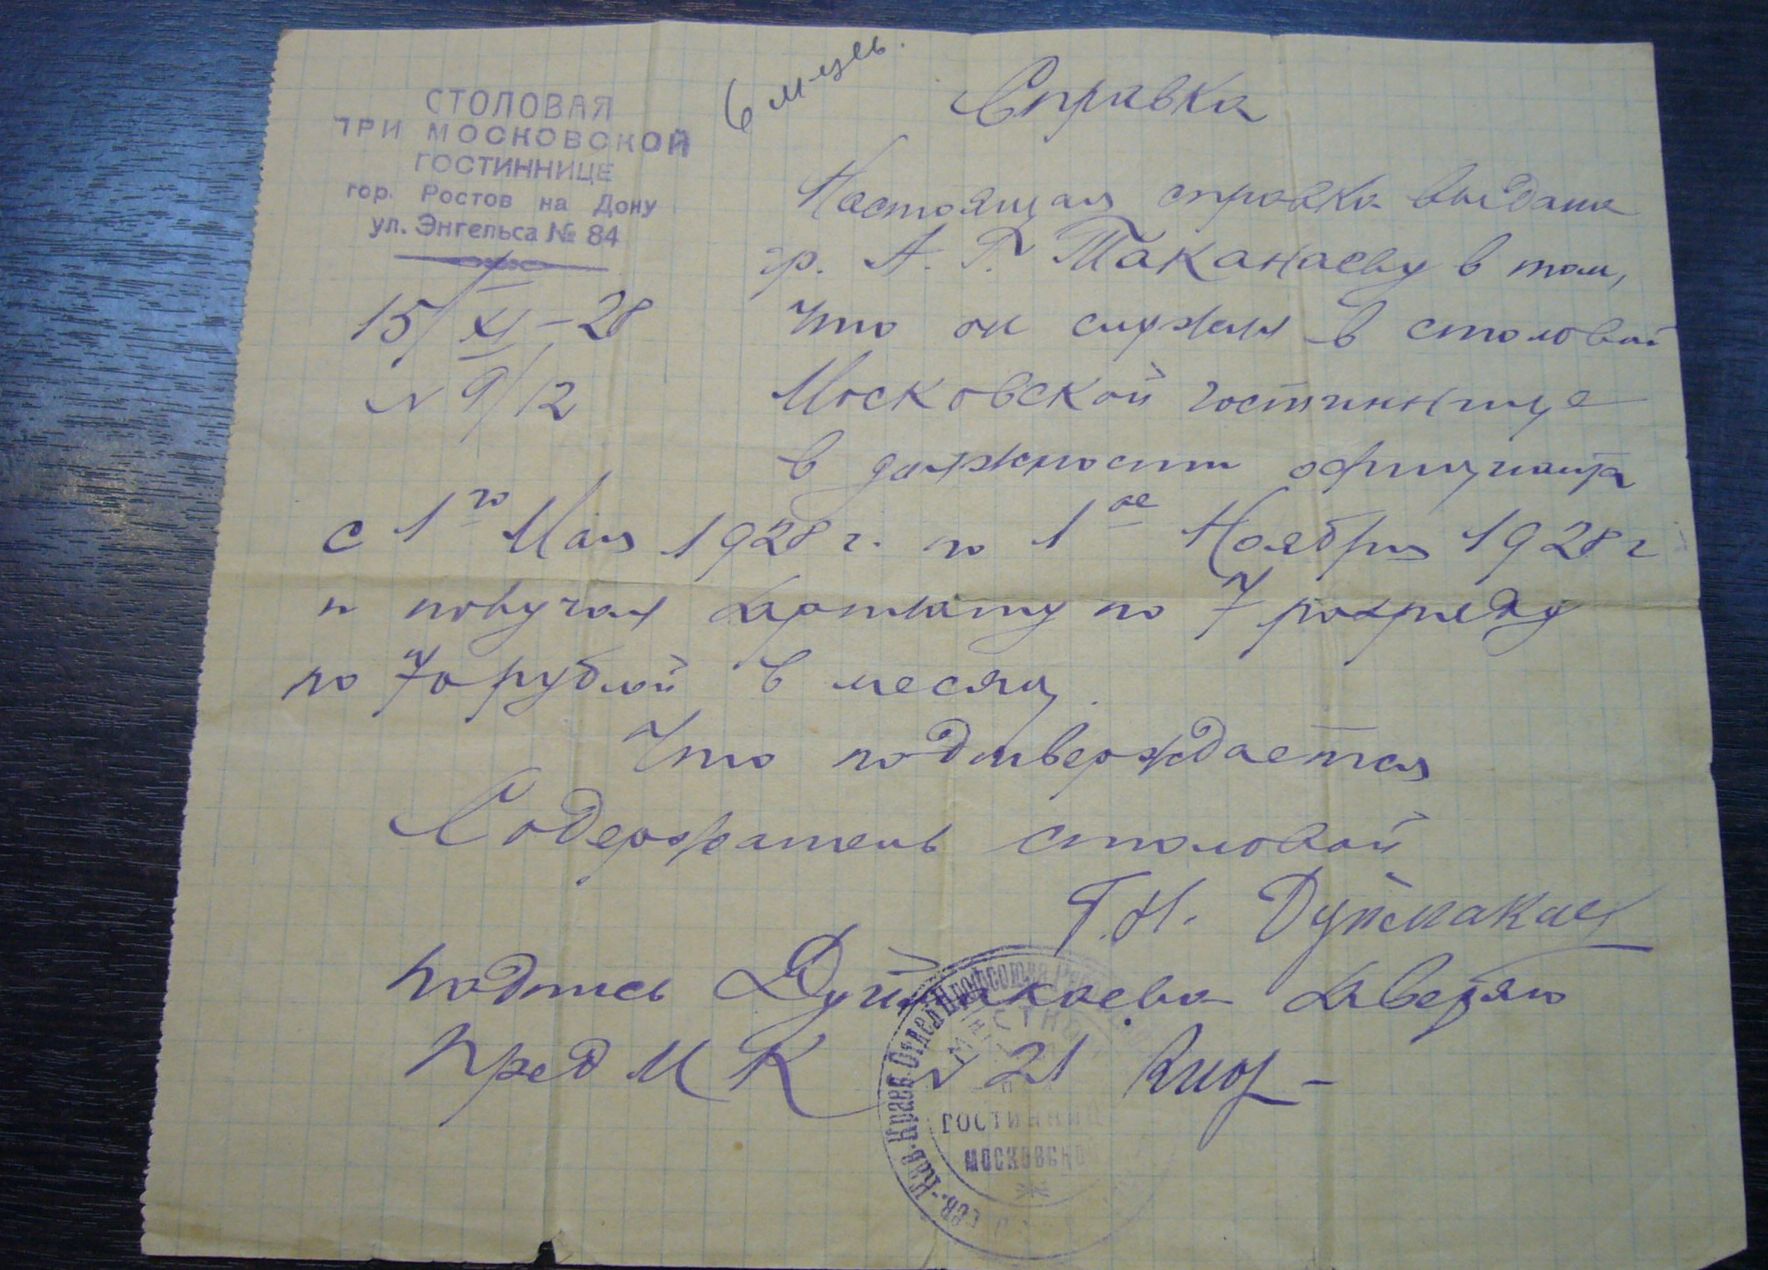 СТОЛОВАЯ
ПРИ МОСКОВСКОЙ
ГОСТИННИЦЕ
гор. Ростов на Дону
ул. Энгельса № 84
15/XI – 28
N 9/12
6 м-цев.
Справка
Настоящая справка выдана
гр. А. Г. Таканаеву в том,
что он служил в столовой
Московской гостиннице
в должности официанта
с 1го Мая 1928 г. по 1ое Ноября 1928 г
и получал зарплату по 7 разряду
по 70 рублей в месяц.
Что подтверждается
Содержатель столовой
Г.Н. Дуймакаев
Подпись Дуймакаева заверяю
Пред М К N 21
Сев.-Кав. Краев. Отдел Профсоюза
МЕСТНЫЙ
ГОСТИННИЦ
МОСКОВСКОЙ